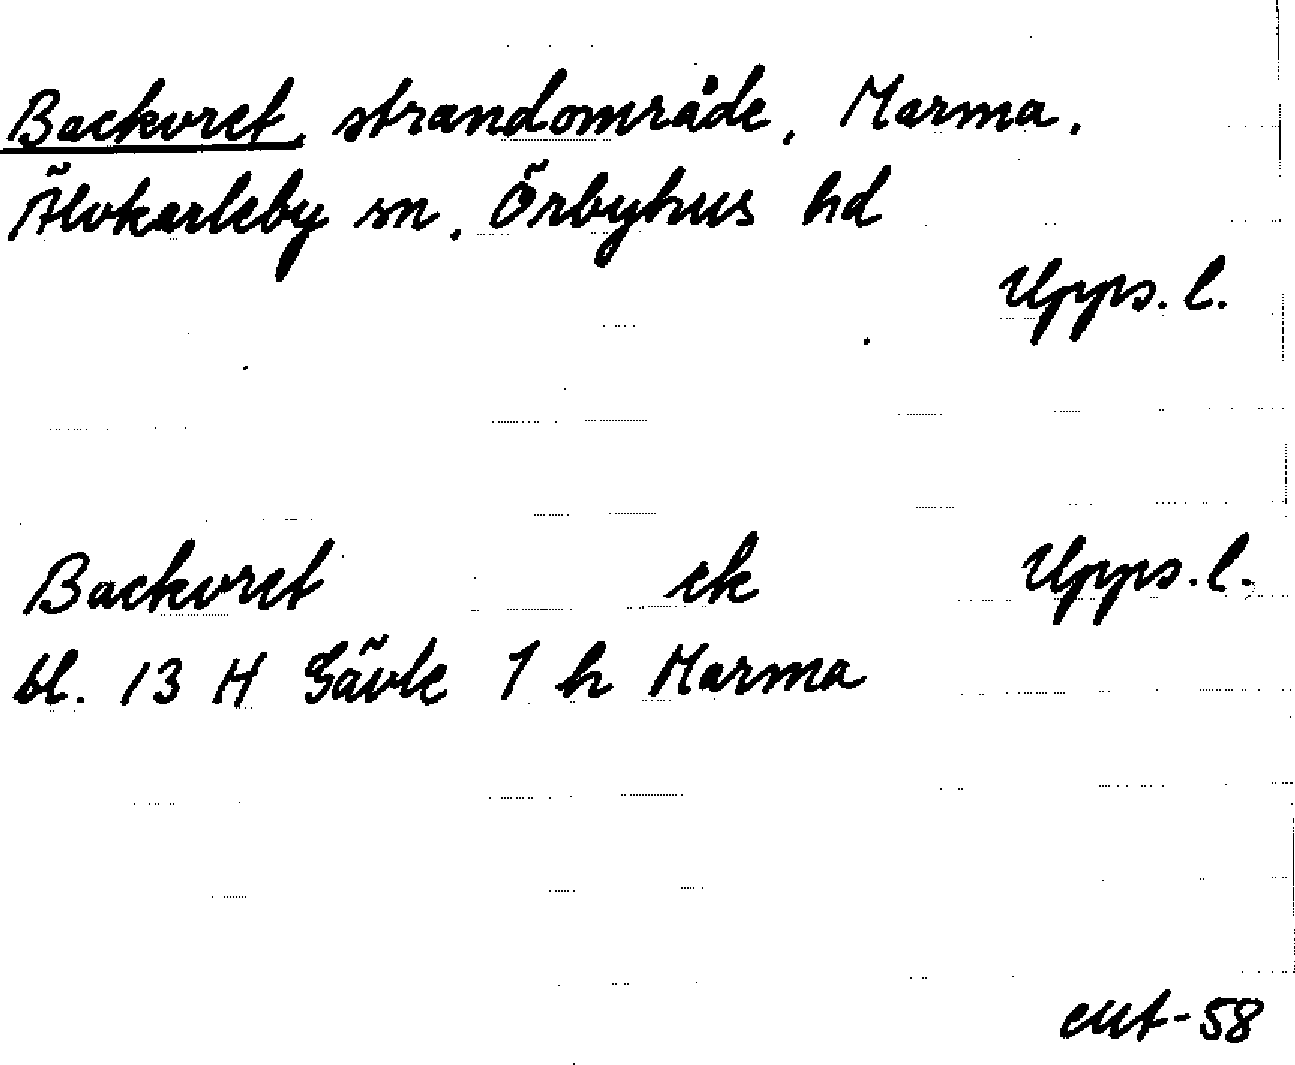 Backvret, strandområde, Marma,
Älvkarleby sn, Örbyhus hd
Upps. l.
Backvret ek Upps. l.
bl. 13 H Gävle 1 h Marma
cut-58